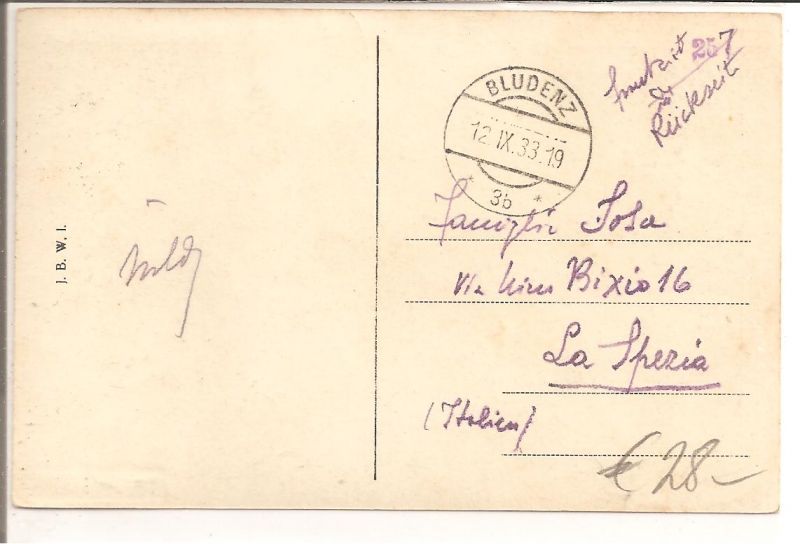 J. B. W. I.
BLUDENZ
12.IX.33.19
* 3b *
257
Rückseite
Famiglia Sosa
Via Nino Bixio 16
La Spezia
(Italien)
€ 28-